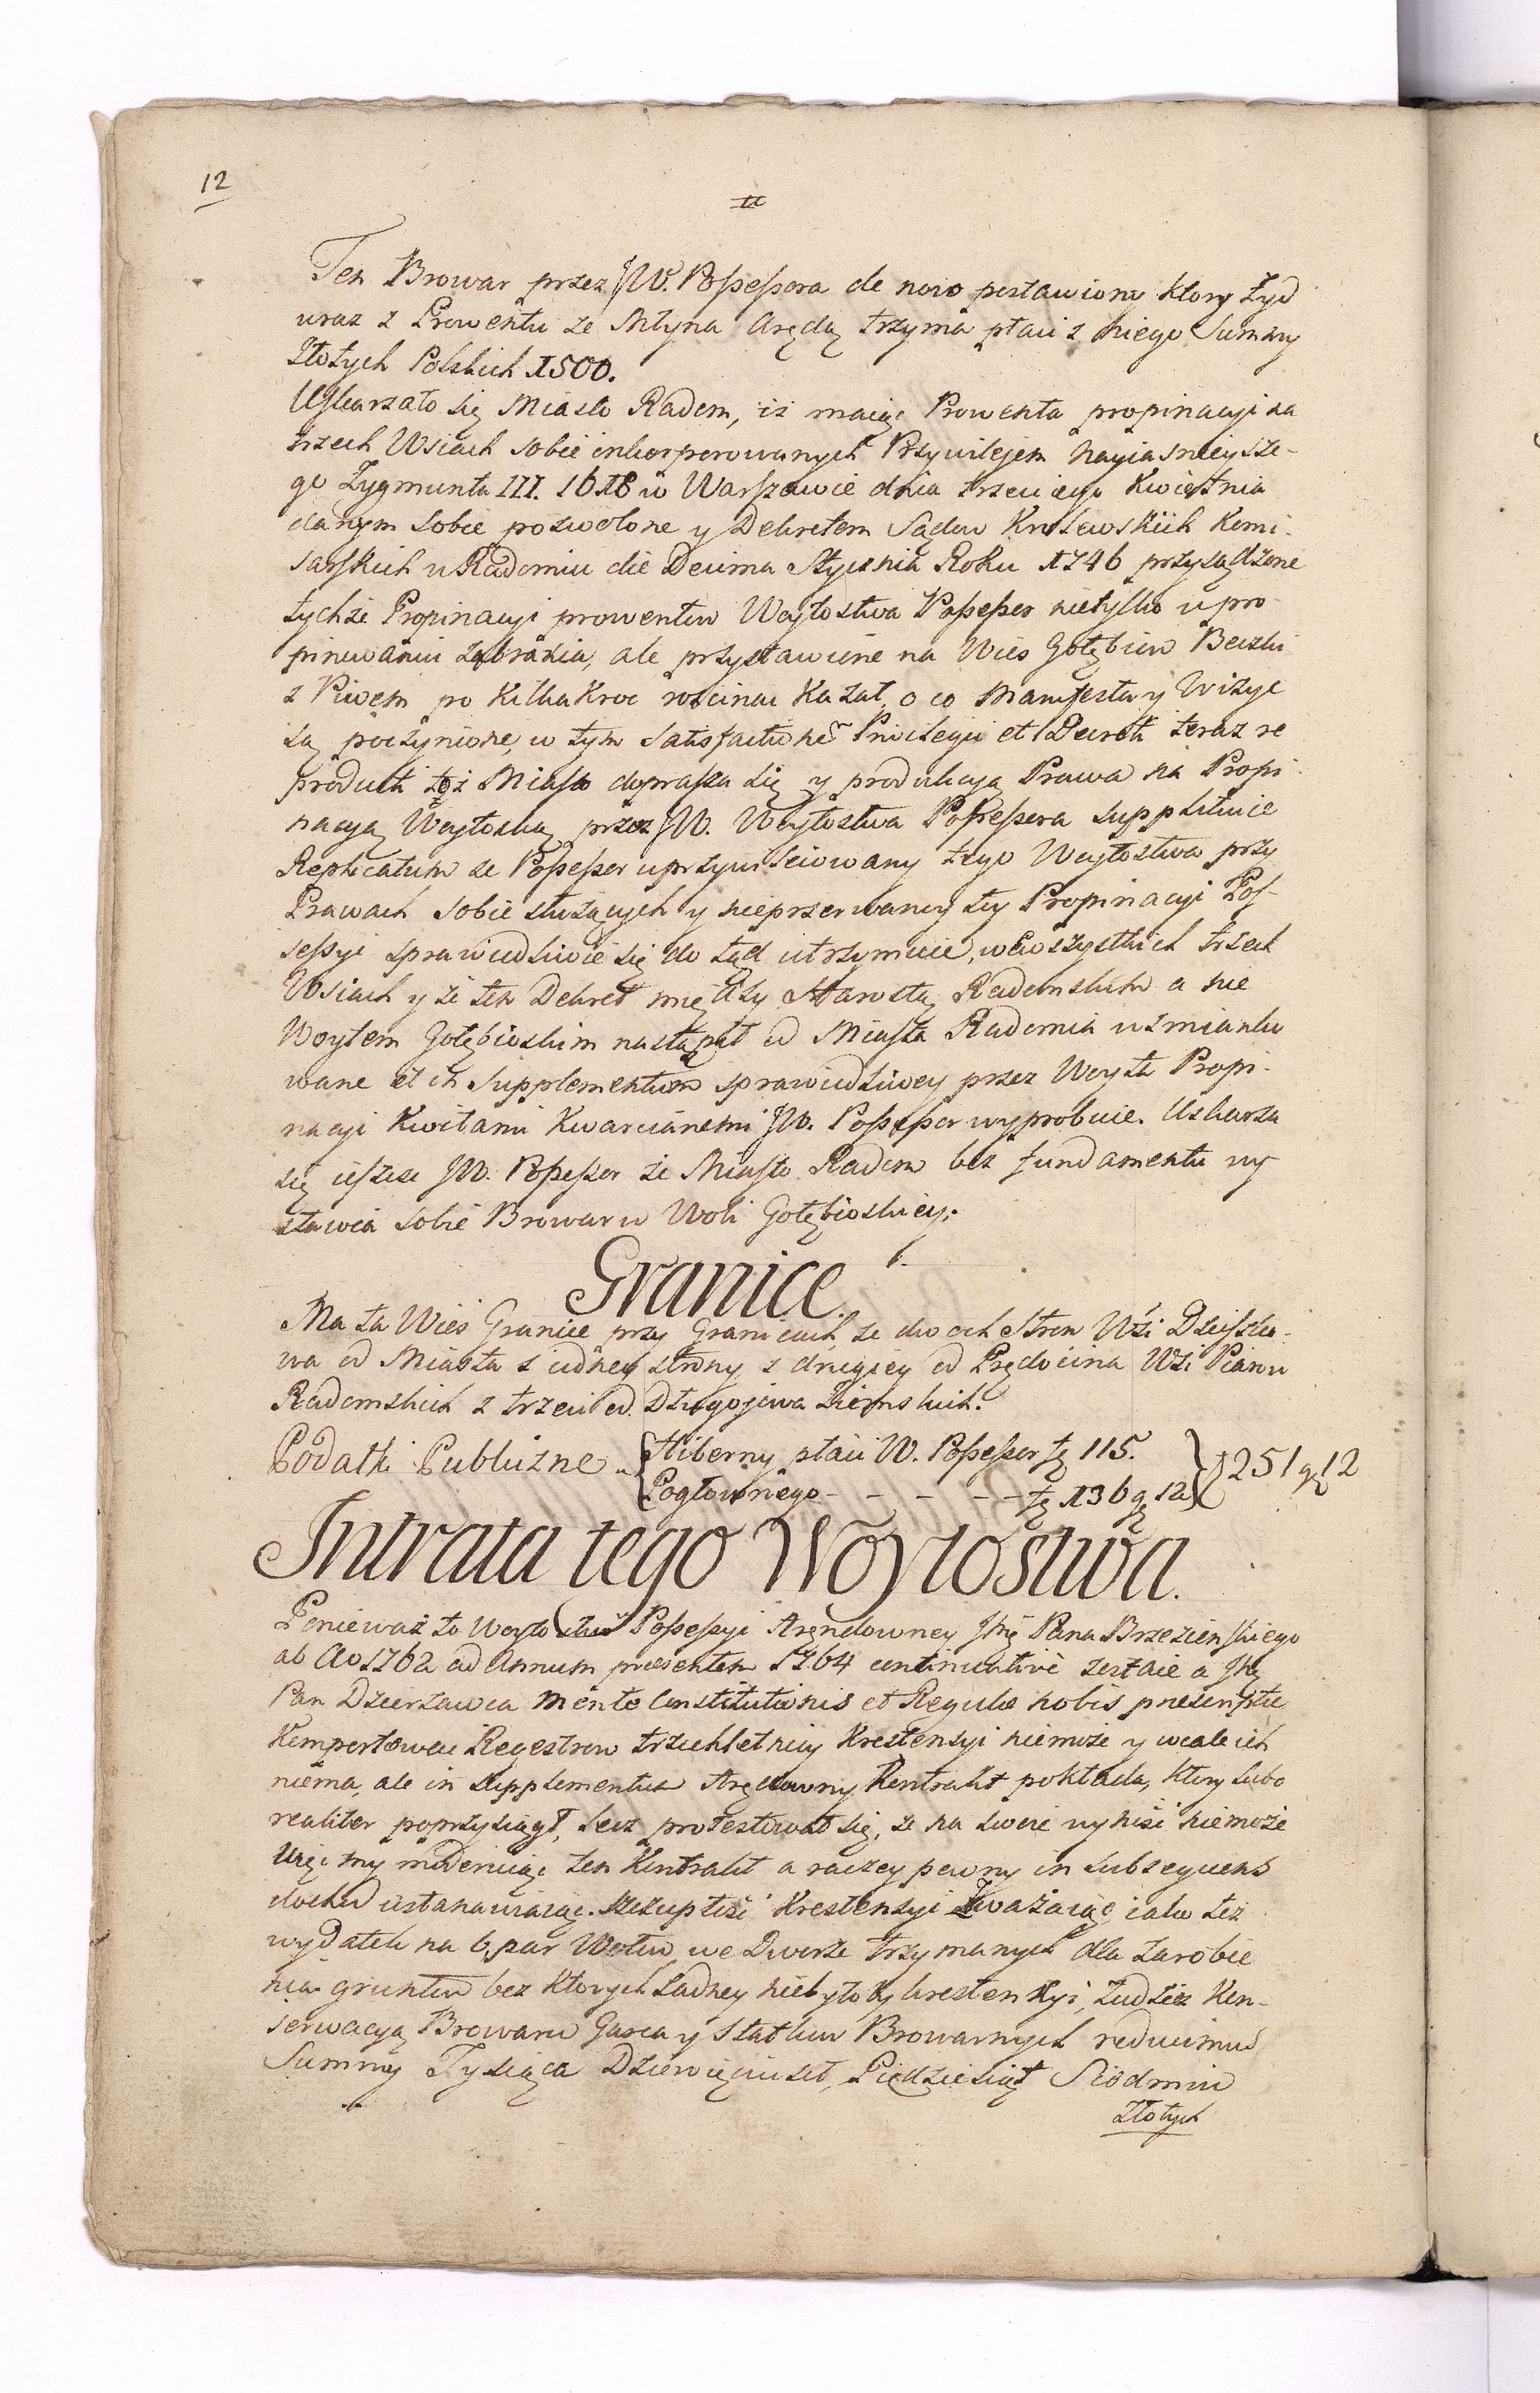 12
Ten Browar przez JW. Possessora de novo postawiony ktory Żyd
wraz z Prowentu ze Młyna Arędą trzyma płaci z niego Summy
Złotych Polskich 1500.
Uskarzało się Miasto Radom, iż maiąc Prowenta propinacyi na
trzech Wsiach sobie inkorporowanych Przywilejem Nayiasnieysze-
go Zygmunta III. 1618 w Warszawie dnia trzeciego Kwietnia
danym sobie pozwolone y Dekretem Sądow Krolewskich Komi-
sarskich w Radomiu die Decima Stycznia Roku 1746 przysądzone
tychże Propinacyi prowentow Woytostwa Possessor nietylko w pro-
pinowaniu zabrania, ale przystawione na Wies Gołębiow Beczki
z Piwem po kilkakroc rościnac kazał, o co Manifesta y Wizye
są poczynione, w tym satisfactionem Privilegii et Decreti teraz re
producti toż Miasto doprasza się y produkcyą Prawa na Propi-
nacyą Woytoską przez JW. Woytostwa Possessora supplikuie
Replicatum ze Possessor uprzywileiowany tego Woytostwa przy
Prawach sobie służących y nieprzerwaney tey Propinacyi Pos-
sessyi sprawiedliwie się do tąd utrzymuie, we wszystkich trzech
Wsiach y że ten Dekret między Starostą Radomskim a nie
Woytem Gołębioskim nastąpił od Miasta Radomia wzmianko
wane et in supplementum sprawiedliwey przez Woyta Propi-
nacyi Kwitami Kwarcianemi JW. Possessor wyprobuie. Uskarza
się ieszcze JW. Possessor że Miasto Radom bez fundamentu wy
stawia sobie Browar w Woli Gołębioskiey:
Granice.
Ma ta Wieś Granice przy Granicach ze dwoch Stron Wsi Dzieszko-
wa od Miasta z iedney strony z drugiey od Prędocina Wsi Piarow
Radomskich z trzeci od Długojowa Ziemskich.
Podatki Publiczne Hiberny płaci W. Possessor zł 115.
Pogłownego - - - - - zł 136 gr 12 251 gr 12
Intrata tego Woytostwa.
Ponieważ to Woytostwo Possessyi Arędowney JMć Pana Brzezieńskiego
ab Ao 1762 ad Annum praesentem 1764 continuative zostaie a JMć
Pan Dzierzawca mente Constitutionis et Regulae nobis praescriptae
Komportowac Regestrow trzechletniey Krestensyi niemoże y wcale ich
niema, ale in supplementum Arędowny Kontrakt pokłada, ktory lubo
realiter poprzysiągł, lecz protestował się, że na swoie wyniść niemoże
Więc my moderuiąc ten Kontrakt a raczey pewny in subsequens
dochod ustanawiaiąc. szczupłość Krestensyi zważaiąc, iako też
wydatek na 6. par Wołow we Dworze trzymanych dla zarobie
nia gruntow bez ktorych żadney niebyłoby krestensyi, tudzież Kon-
serwacyą Browaru Garca y Statkow Browarnych reducimus
Summy Tysiąca Dziewięciuset, Piędziesiąt Siodmiu
Złotych